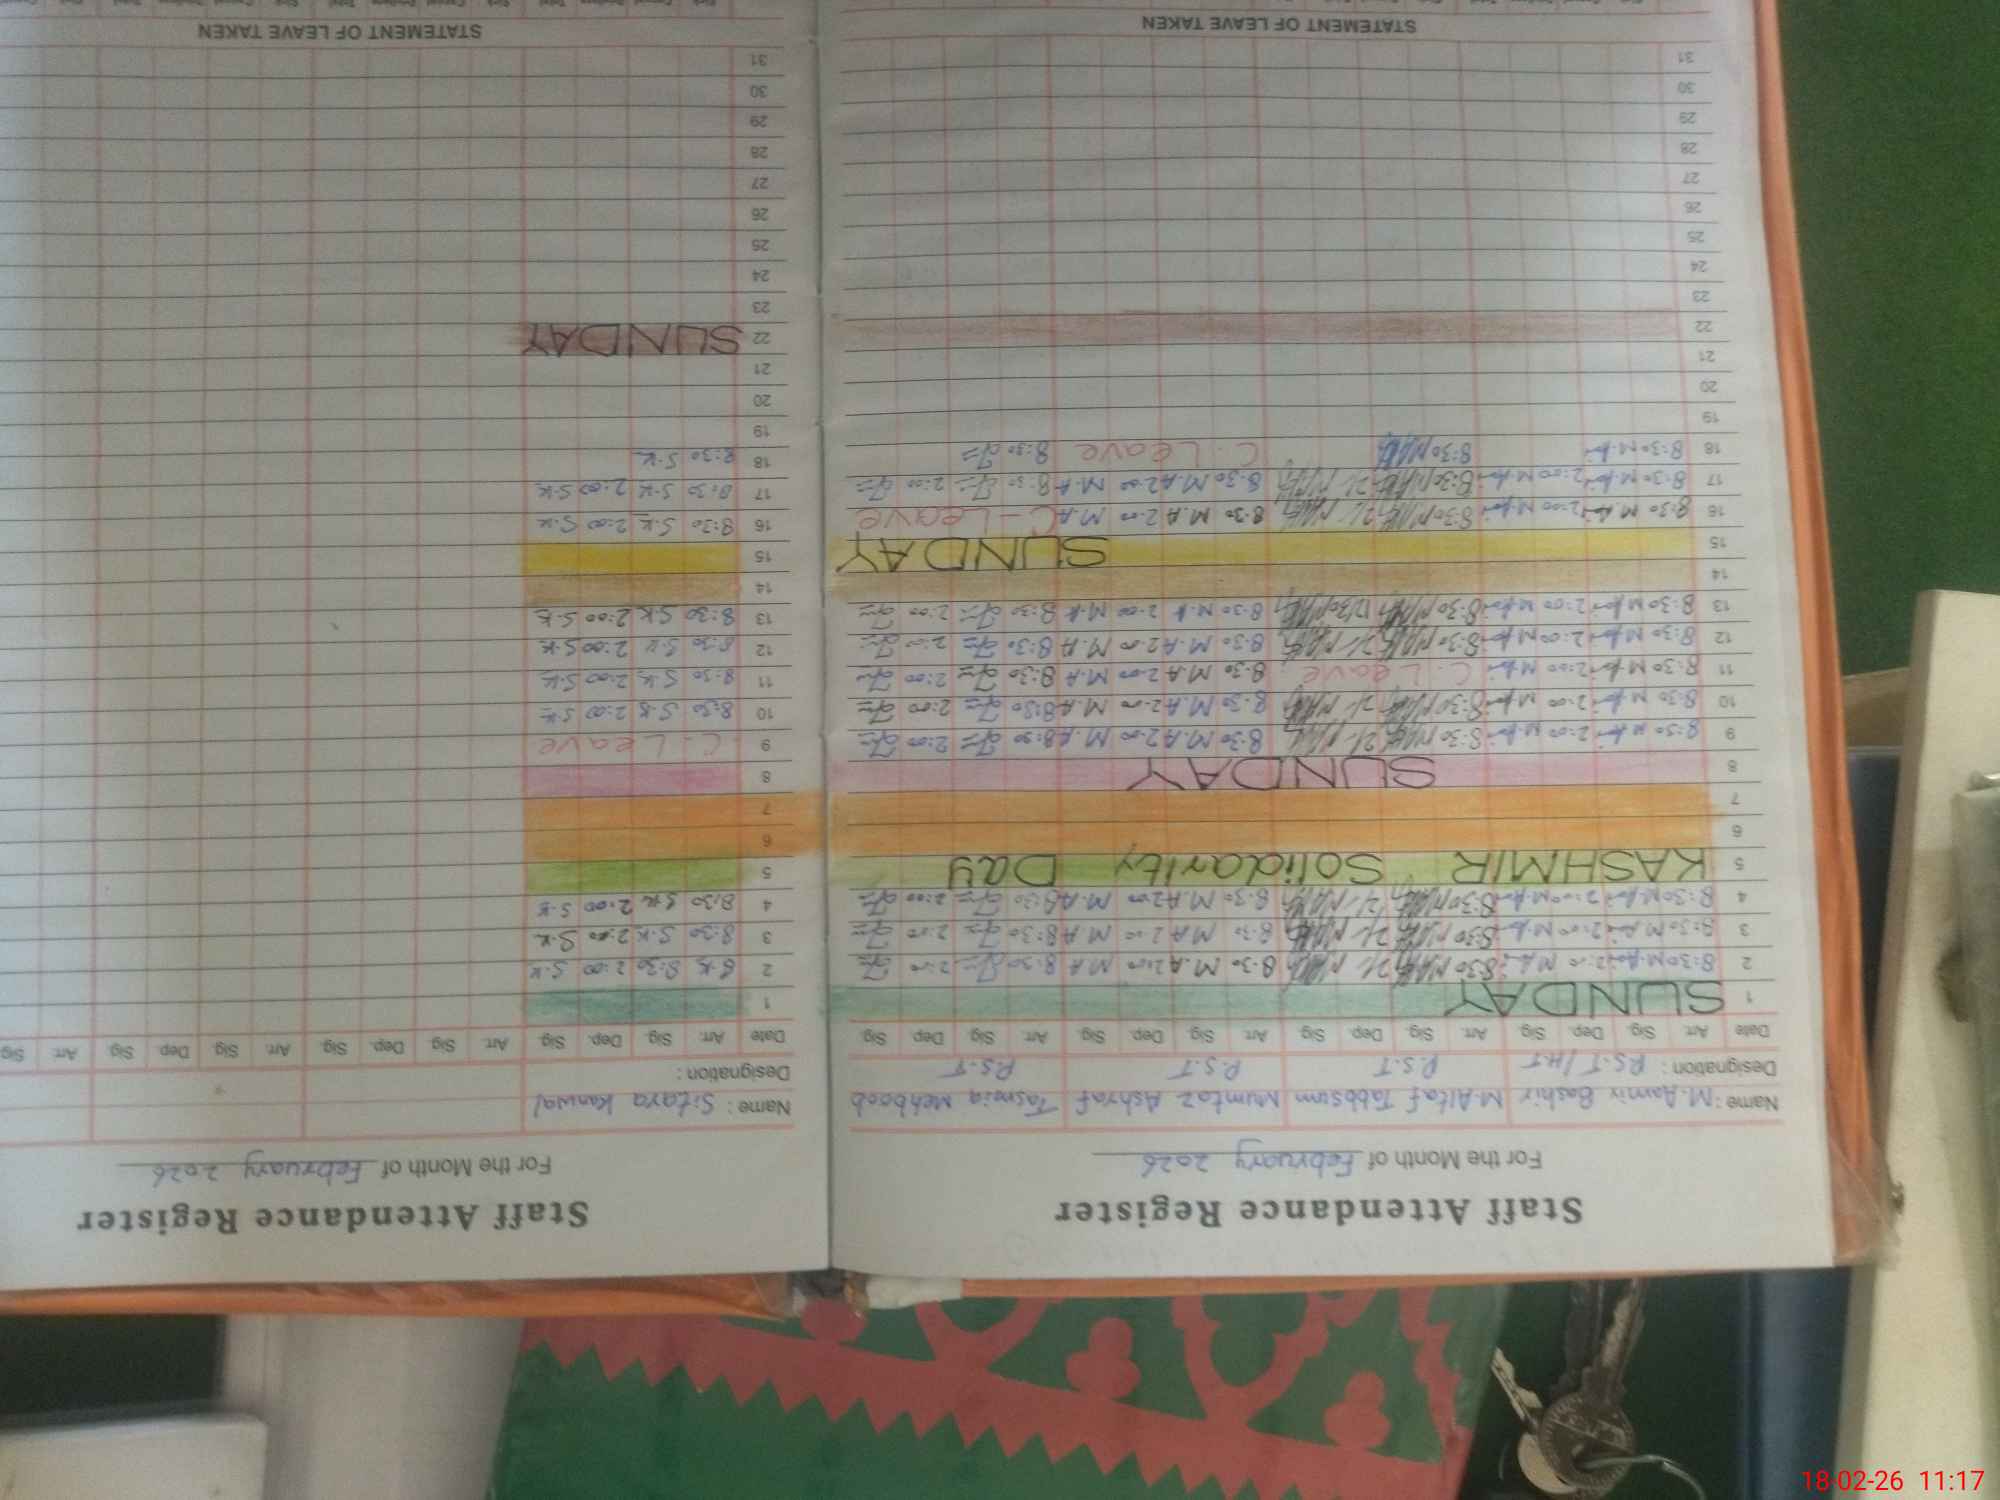 Staff Attendance Register
For the Month of February 2026
Name: M.Aamir Bashir M.Altaf Tabbsum Mumtaz Ashraf Tasmia Mehboob
Designation: P.S.T/H.T P.S.T P.S.T P.S.T
Date Arr. Sig. Dep. Sig. Arr. Sig. Dep. Sig. Arr. Sig. Dep. Sig. Arr. Sig. Dep. Sig.
1 SUNDAY
2 8:30 2:00 8:30 8:30 M.A 2:00 M.A 8:30 2:00
3 8:30 2:00 8:30 8:30 M.A 2:00 M.A 8:30 2:00
4 8:30 2:00 8:30 8:30 M.A 2:00 M.A 8:30 2:00
5 KASHMIR Solidarity Day
6
7
8 SUNDAY
9 8:30 2:00 8:30 8:30 M.A 2:00 M.A 8:30 2:00
10 8:30 2:00 8:30 8:30 M.A 2:00 M.A 8:30 2:00
11 8:30 2:00 C. Leave 8:30 M.A 2:00 M.A 8:30 2:00
12 8:30 2:00 8:30 8:30 M.A 2:00 M.A 8:30 2:00
13 8:30 2:00 8:30 12/30 8:30 M.A 2:00 M.A 8:30 2:00
14
15 SUNDAY
16 8:30 2:00 8:30 8:30 M.A 2:00 M.A C-Leave
17 8:30 2:00 8:30 8:30 M.A 2:00 M.A 8:30 2:00
18 8:30 8:30 C. Leave 8:30
19
20
21
22
23
24
25
26
27
28
29
30
31
STATEMENT OF LEAVE TAKEN
Staff Attendance Register
For the Month of February 2026
Name: Sitara Kanwal
Designation:
Date Arr. Sig. Dep. Sig. Arr. Sig. Dep. Sig. Arr. Sig. Dep. Sig. Arr. Sig
1
2 S.K 8:30 2:00 S.K
3 8:30 S.K 2:00 S.K
4 8:30 S.K 2:00 S.K
5
6
7
8
9 C. Leave
10 8:30 S.K 2:00 S.K
11 8:30 S.K 2:00 S.K
12 8:30 S.K 2:00 S.K
13 8:30 S.K 2:00 S.K
14
15
16 8:30 S.K 2:00 S.K
17 8:30 S.K 2:00 S.K
18 8:30 S.K
19
20
21
22 SUNDAY
23
24
25
26
27
28
29
30
31
STATEMENT OF LEAVE TAKEN
18-02-26 11:17